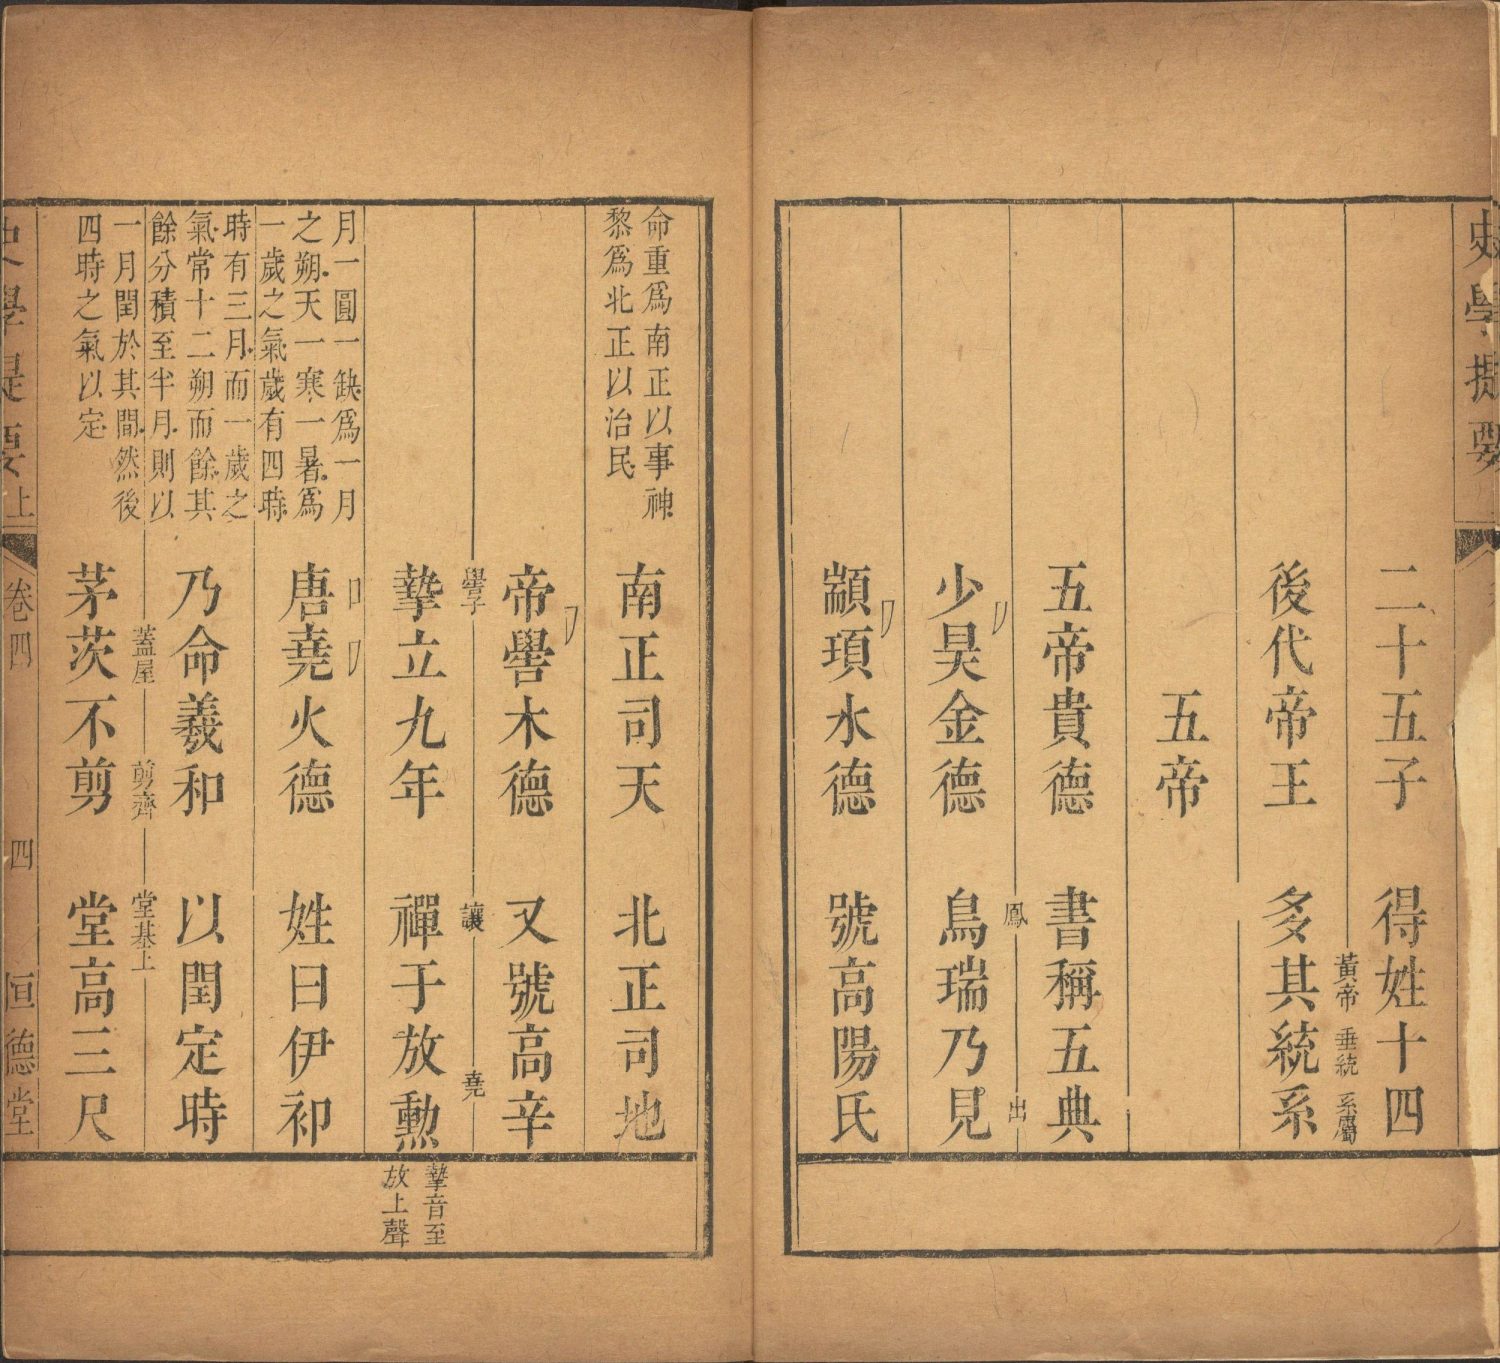 史學提要
二十五子 得姓十四
黃帝 垂統 系屬
後代帝王 多其統系
五帝
五帝貴德 書稱五典
鳳 出
少昊金德 鳥瑞乃見
顓頊水德 號高陽氏
命重爲南正以事神
黎爲北正以治民
南正司天 北正司地
帝嚳木德 又號高辛
嚳子 讓 堯
摯立九年 禪于放勲
摯音至
放上聲
月一圓一缺爲一月
之朔天一寒一暑爲
一歲之氣歲有四時
時有三月而一歲之
氣常十二朔而餘其
餘分積至半月則以
一月閏於其間然後
四時之氣以定
唐堯火德 姓曰伊祁
乃命羲和 以閏定時
蓋屋 剪齊 堂基上
茅茨不剪 堂高三尺
史學提要上 卷四 四 恒德堂